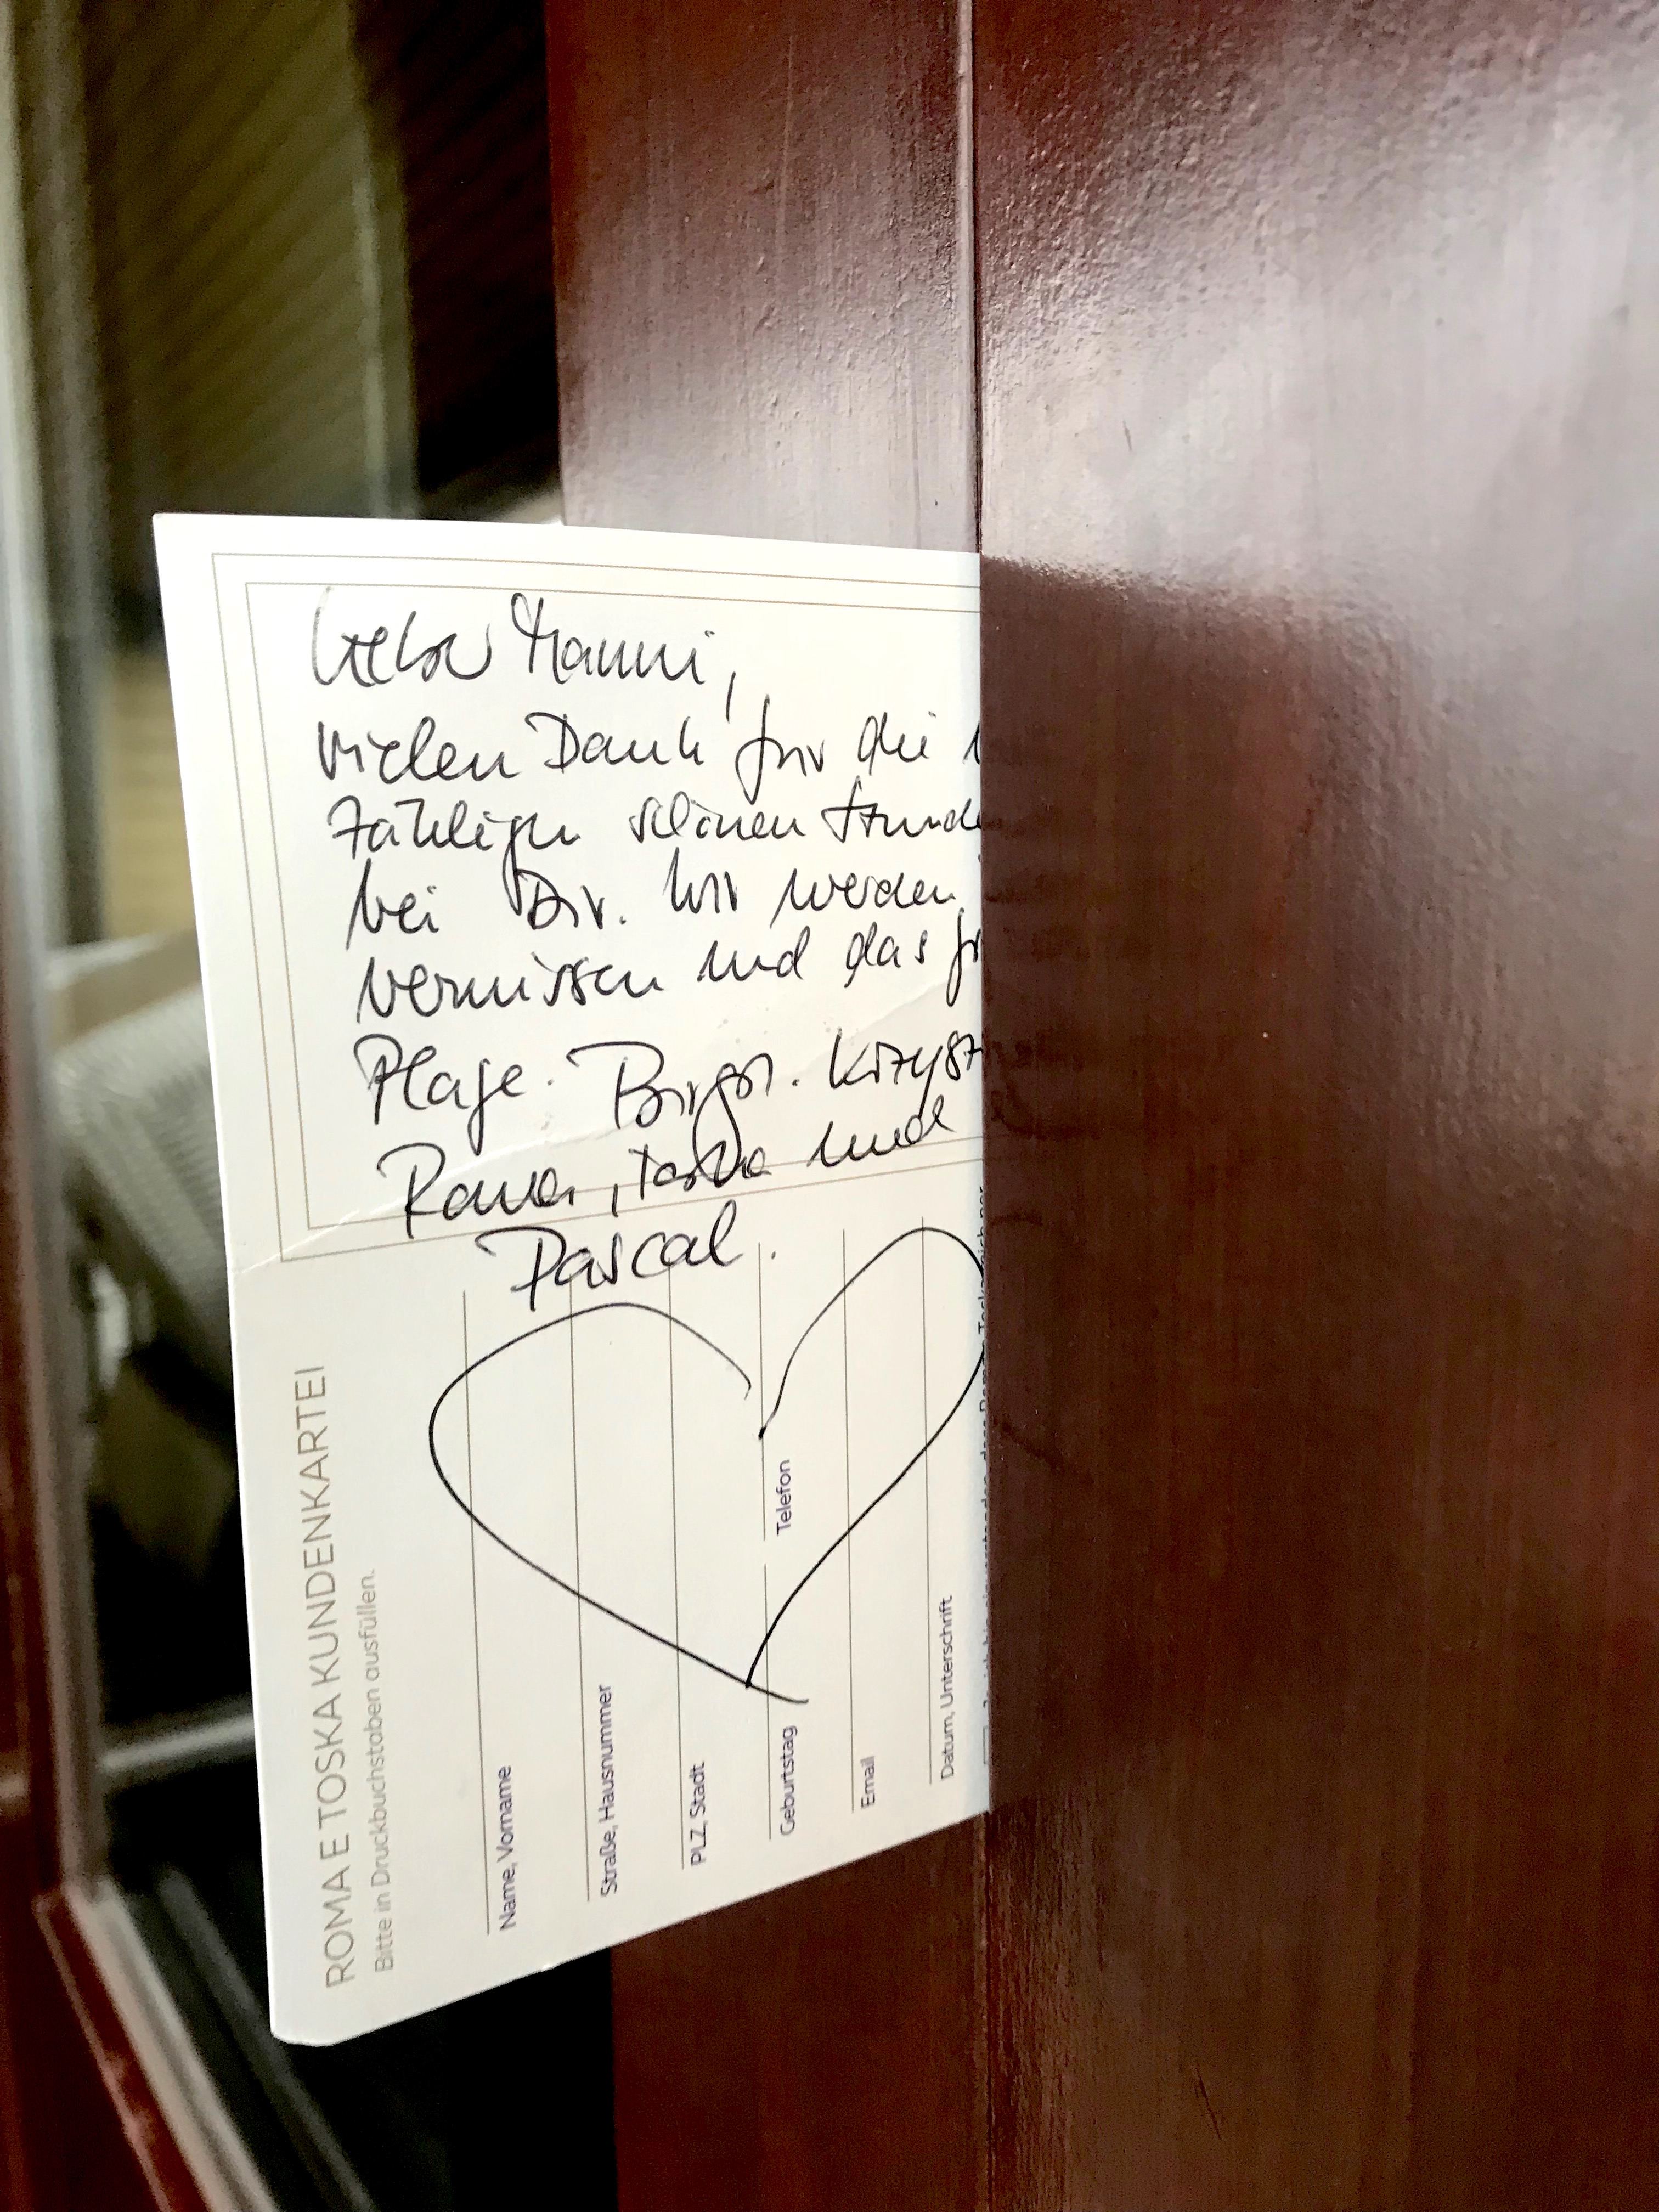 Lieber Manni,
vielen Dank für die
zähligen schönen Stunde
bei Dir. Wir werden
vermissen und das
Plage. Birgit. Krzysz
und
Pascal.
ROMA E TOSKA KUNDENKARTEI
Bitte in Druckbuchstaben ausfüllen.
Name, Vorname
Straße, Hausnummer
PLZ, Stadt
Geburtstag
Telefon
Email
Datum, Unterschrift